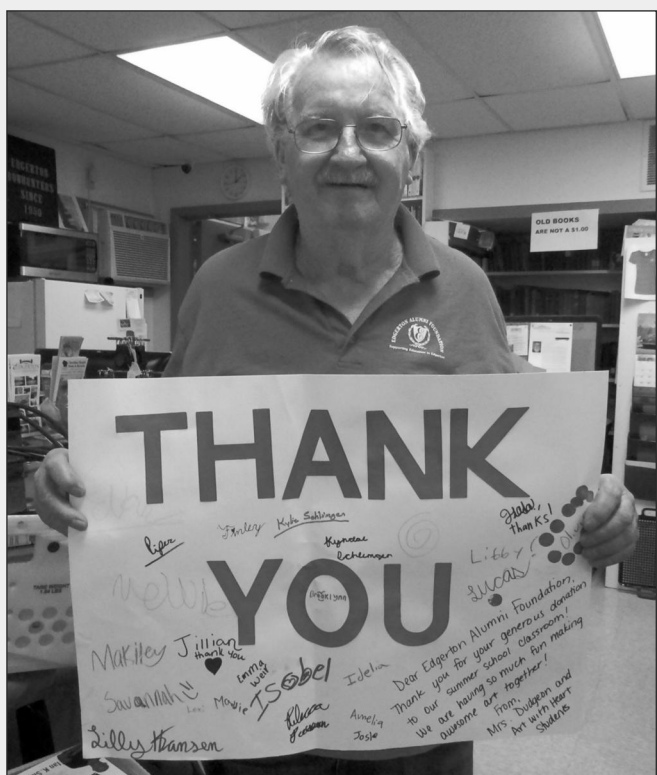 EDGERTON
REPORTERS
SINCE
1950
OLD BOOKS
ARE NOT A $1.00
EDGERTON ALUMNI FOUNDATION
THANK
YOU
Piper
Finley
thanks!
Libby
Lucas
Makiley
Jillian
thank you
Emma
Weir
Isobel
Idelia
Savannah
Lexi
Rebecca
Amelia
Josie
Lilly Hansen
Dear Edgerton Alumni Foundation,
Thank you for your generous donation
to our summer school classroom!
We are having so much fun making
awesome art together!
From,
Mrs. Dudgeon and
Art with Heart
Students